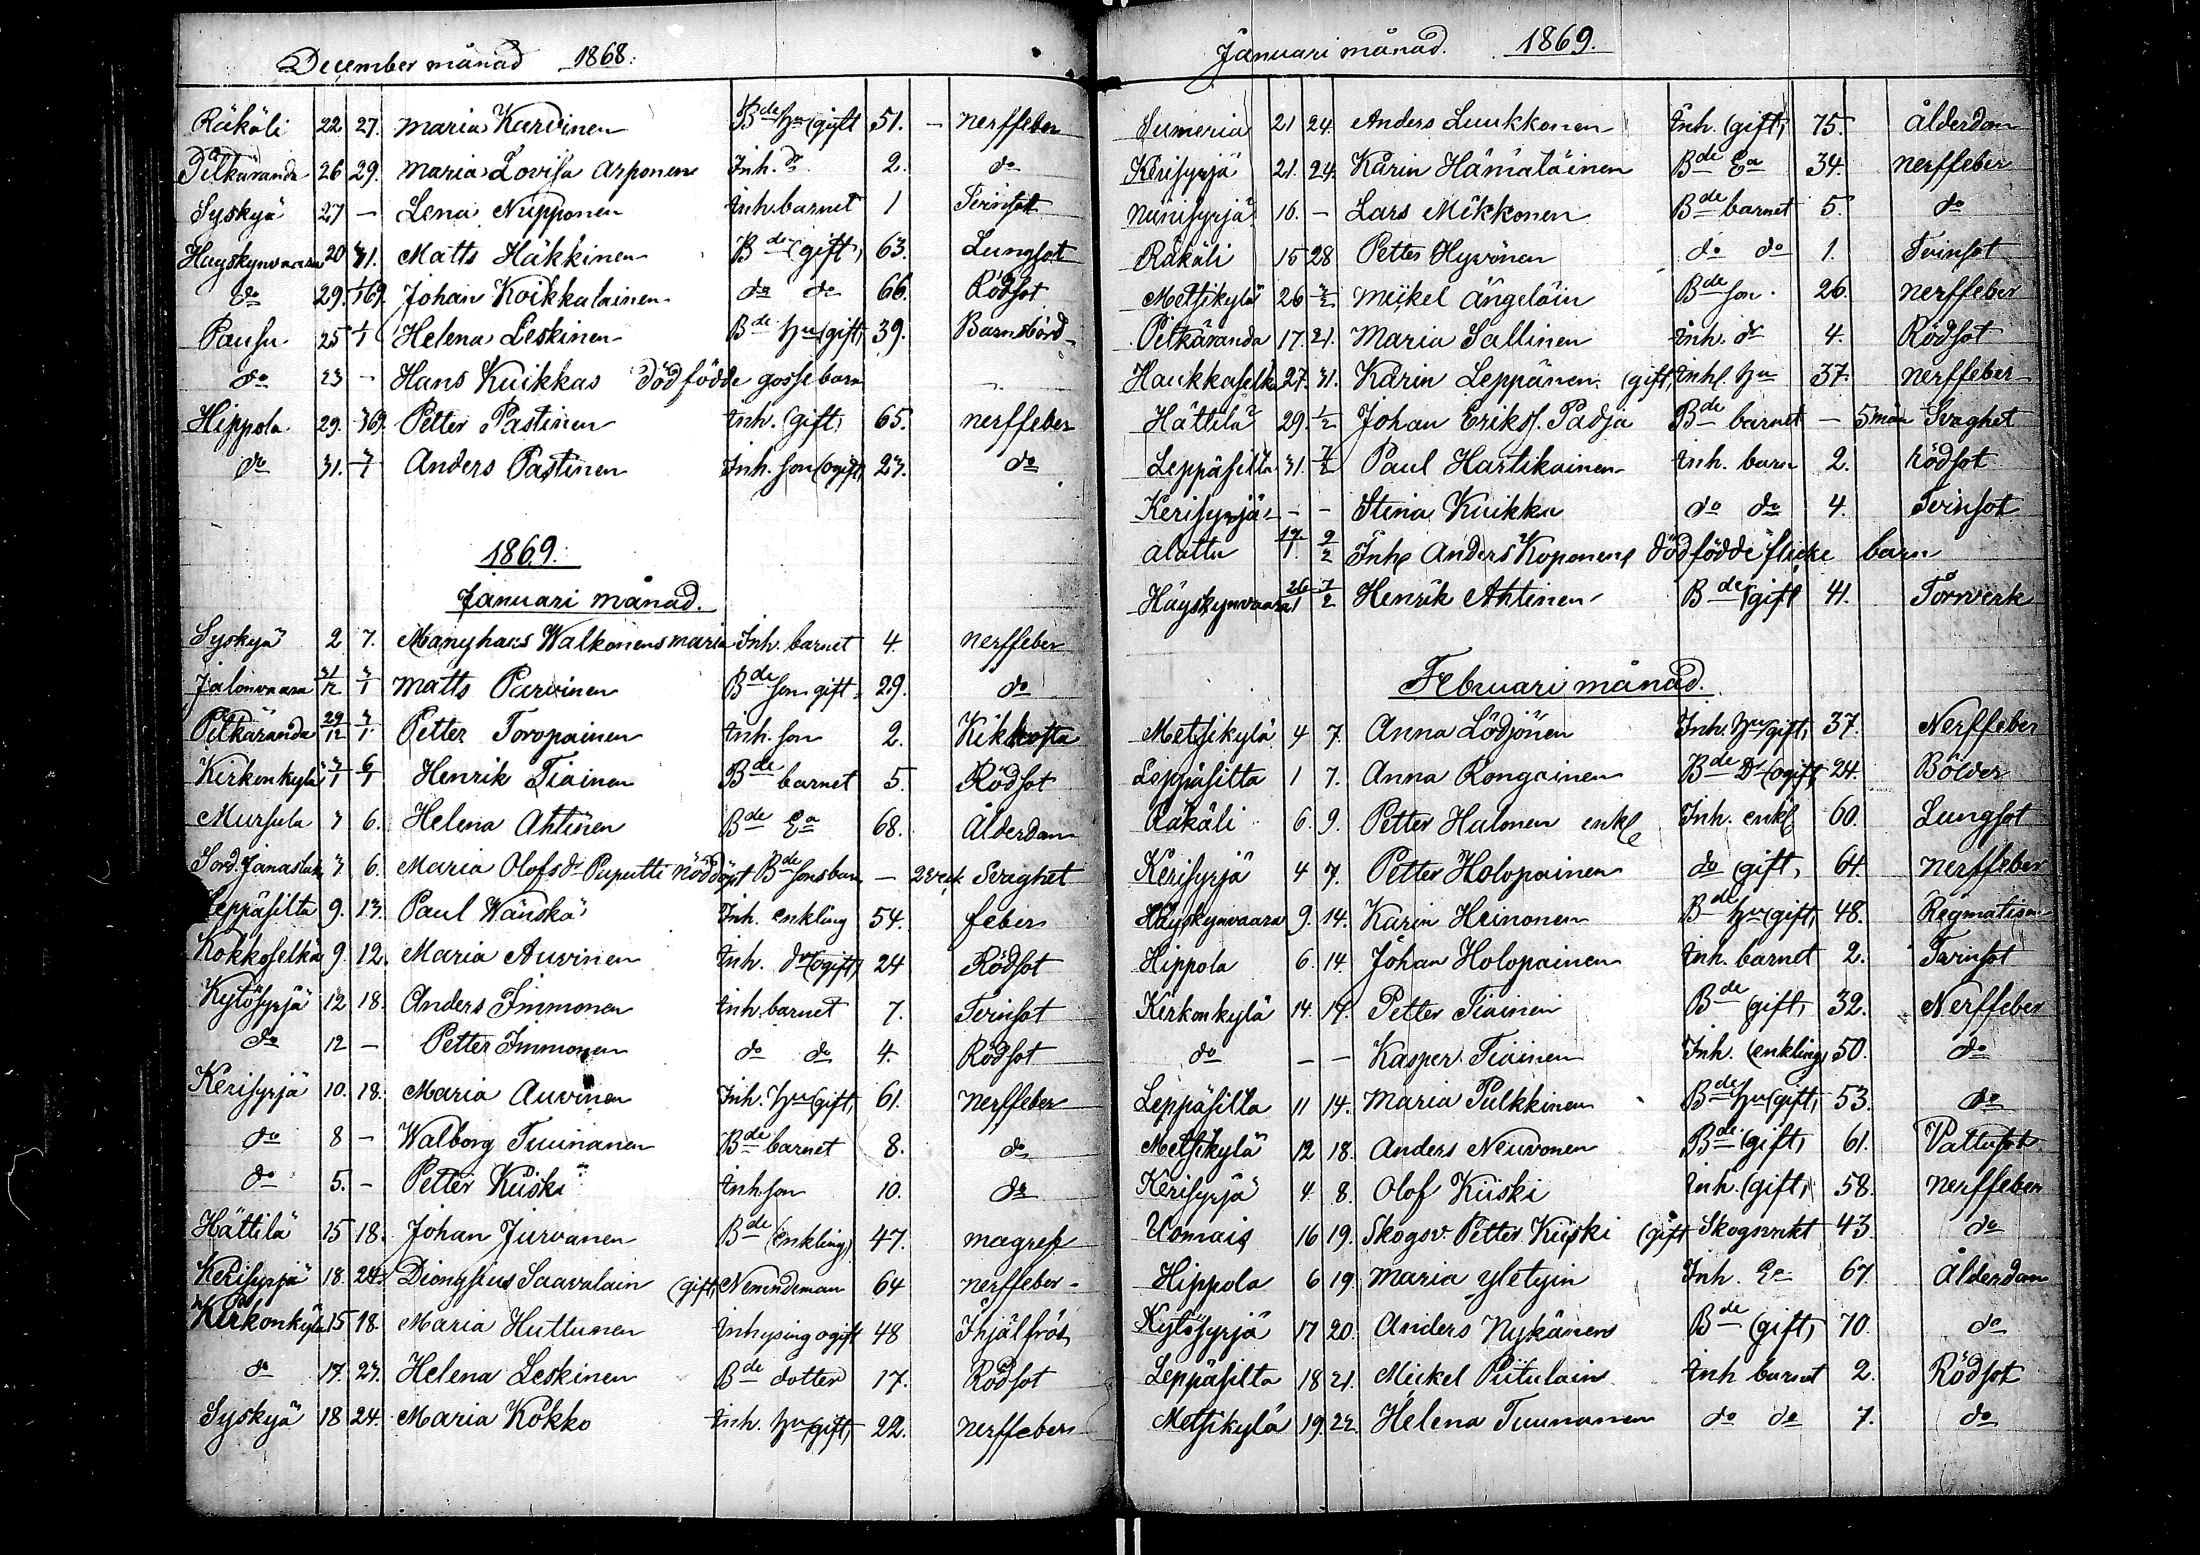 December månad 1868.
Räkäli 22 27. Maria Karvinen Bde hu (gift 51. - nerffeber
Pitkäranda 26 29. Maria Lovisa Arponen Inh. dr 2. do
Syskyä 27 - Lena Nupponen Inh. barnet 1 Tvinsot
Hayskynvaara 20 31. Matts Häkkinen Bde (gift) 63. Lungsot
do 29. 1/1 69. Johan Koikkalainen do do 66. Rödsot
Pausu 25 1/1 Helena Leskinen Bde hu (gift) 39. Barnsbörd
do 23 - Hans Kuikkas dödfödde gossebarn
Hippola 29. 3/69. Petter Pastinen Inh. (gift) 65. nerffeber
do 31. 3/1 Anders Pastinen Inh. son (ogift) 23. do
1869.
Januari månad.
Syskyä 2 7. Manghans Walkonens Maria Inh. barnet 4 nerffeber
Jalonvaara 31/12 3/1 Matts Parvinen Bde son gift. 29. do
Pitkäranda 29/12 3/1. Petter Toropainen Inh. son 2. Kikhosta
Kirkonkylä 3/1 6/1 Henrik Tiainen Bde barnet 5. Rödsot
Mursula 3 6. Helena Ahtinen Bde Ea 68. Ålderdom
Sord. 3 6. Maria Olofsdr Puputti nöddöpt Bde sonsbarn - 2 veck Svaghet
Leppäsilta 9. 13. Paul Wänskä Inh. enkling 54. feber
Kokkoselkä 9. 12. Maria Auvinen Inh. dr (ogift) 24 Rödsot
Kytösyrjä 12 18. Anders Immonen Inh. barnet 7. Tvinsot
do 12 - Petter Immonen do do 4. Rödsot
Kerisyrjä 10. 18. Maria Auvinen Inh. hu (gift) 61. nerffeber
do 8 - Walborg Tuunanen Bde barnet 8. do
do 5. - Petter Kiiski Inh. son 10. do
Hättilä 15 18. Johan Jurvanen Bde (enkling) 47. magref
Kerisyrjä 18. 24. Dionysius Saavalain (gift) Nemndeman 64 nerffeber
Kirkonkylä 15 18. Maria Huttunen Inhysing ogift 48 Ihjälfrös
do 17. 23. Helena Leskinen Bde dotter 17. Rödsot
Syskyä 18 24. Maria Kokko Inh. hu (gift) 22. nerffeber
Januari månad. 1869.
Sumeria 21 24. Anders Luukkonen Inh. (gift) 75. Ålderdom
Kerisyrjä 21. 24. Karin Hämäläinen Bde Ea 34. nerffeber
Niinisyrjä 16. - Lars Mikkonen Bde barnet 5. do
Räkäli 15 28 Petter Hyvönen do do 1. Tvinsot
Metsikylä 26 3/2 Mikel Ängeläin Bde son. 26. nerffeber
Pitkäranda 17. 21. Maria Sallinen Inh. dr 4. Rödsot
Haukkaselkä 27. 31. Karin Leppänen (gift) Inh. hu 37. nerffeber
Hättilä 29. 1/2 Johan Eriks. Padja Bde barnet - 5 mån Svaghet
Leppäsilta 31. 7/2 Paul Hartikainen Inh. barn 2. Rödsot
Kerisyrjä - - Stina Kuikka do do 4. Tvinsot
Alattu 17/1. 2/2 Inh Anders Koponens dödfödde flicke barn
Häyskynvaara 26/1 7/2 Henrik Ahtinen Bde (gift 41. Torrverk
Februari månad.
Metsikylä 4 7. Anna Lödjönen Inh. hu (gift) 37. Nerffeber
Leppäsilta 1 7. Anna Rongainen Bde Dr (ogift) 24. Bölder
Räkäli 6. 9. Petter Halonen enkl Inh. enkl 60. Lungsot
Kerisyrjä 4 7. Petter Holopainen do (gift) 64. nerffeber
Häyskynvaara 9. 14. Karin Heinonen Bde hu (gift) 48. Regmatism
Hippola 6. 14. Johan Holopainen Inh. barnet 2. Tvinsot
Kirkonkylä 14. 14. Petter Tiainen Bde (gift) 32. Nerffeber
do - - Kasper Tiainen Inh. (enkling) 50. do
Leppäsilta 11 14. Maria Pulkkinen Bde hu (gift) 53. do
Metsikylä 12 18. Anders Neuvonen Bde (gift) 61. Vattusot
Kerisyrjä 4. 8. Olof Kiiski Inh. (gift) 58. nerffeber
Uomais 16 19. Skogsv. Petter Kiiski (gift Skogsvakt 43. do
Hippola 6 19. Maria Yletyin Inh. Ea 67. Ålderdom
Kytösyrjä 17 20. Anders Nykänen Bde (gift) 70. do
Leppäsilta 18 21. Mickel Piitulain Inh barnet 2. Rödsot
Metsikylä 19. 22. Helena Tuunanen do do 7. do